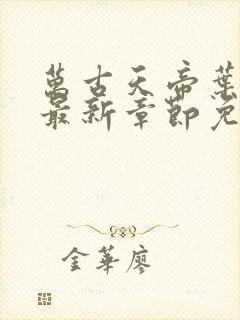 萬古天帝葉
最新章節免
金華廖